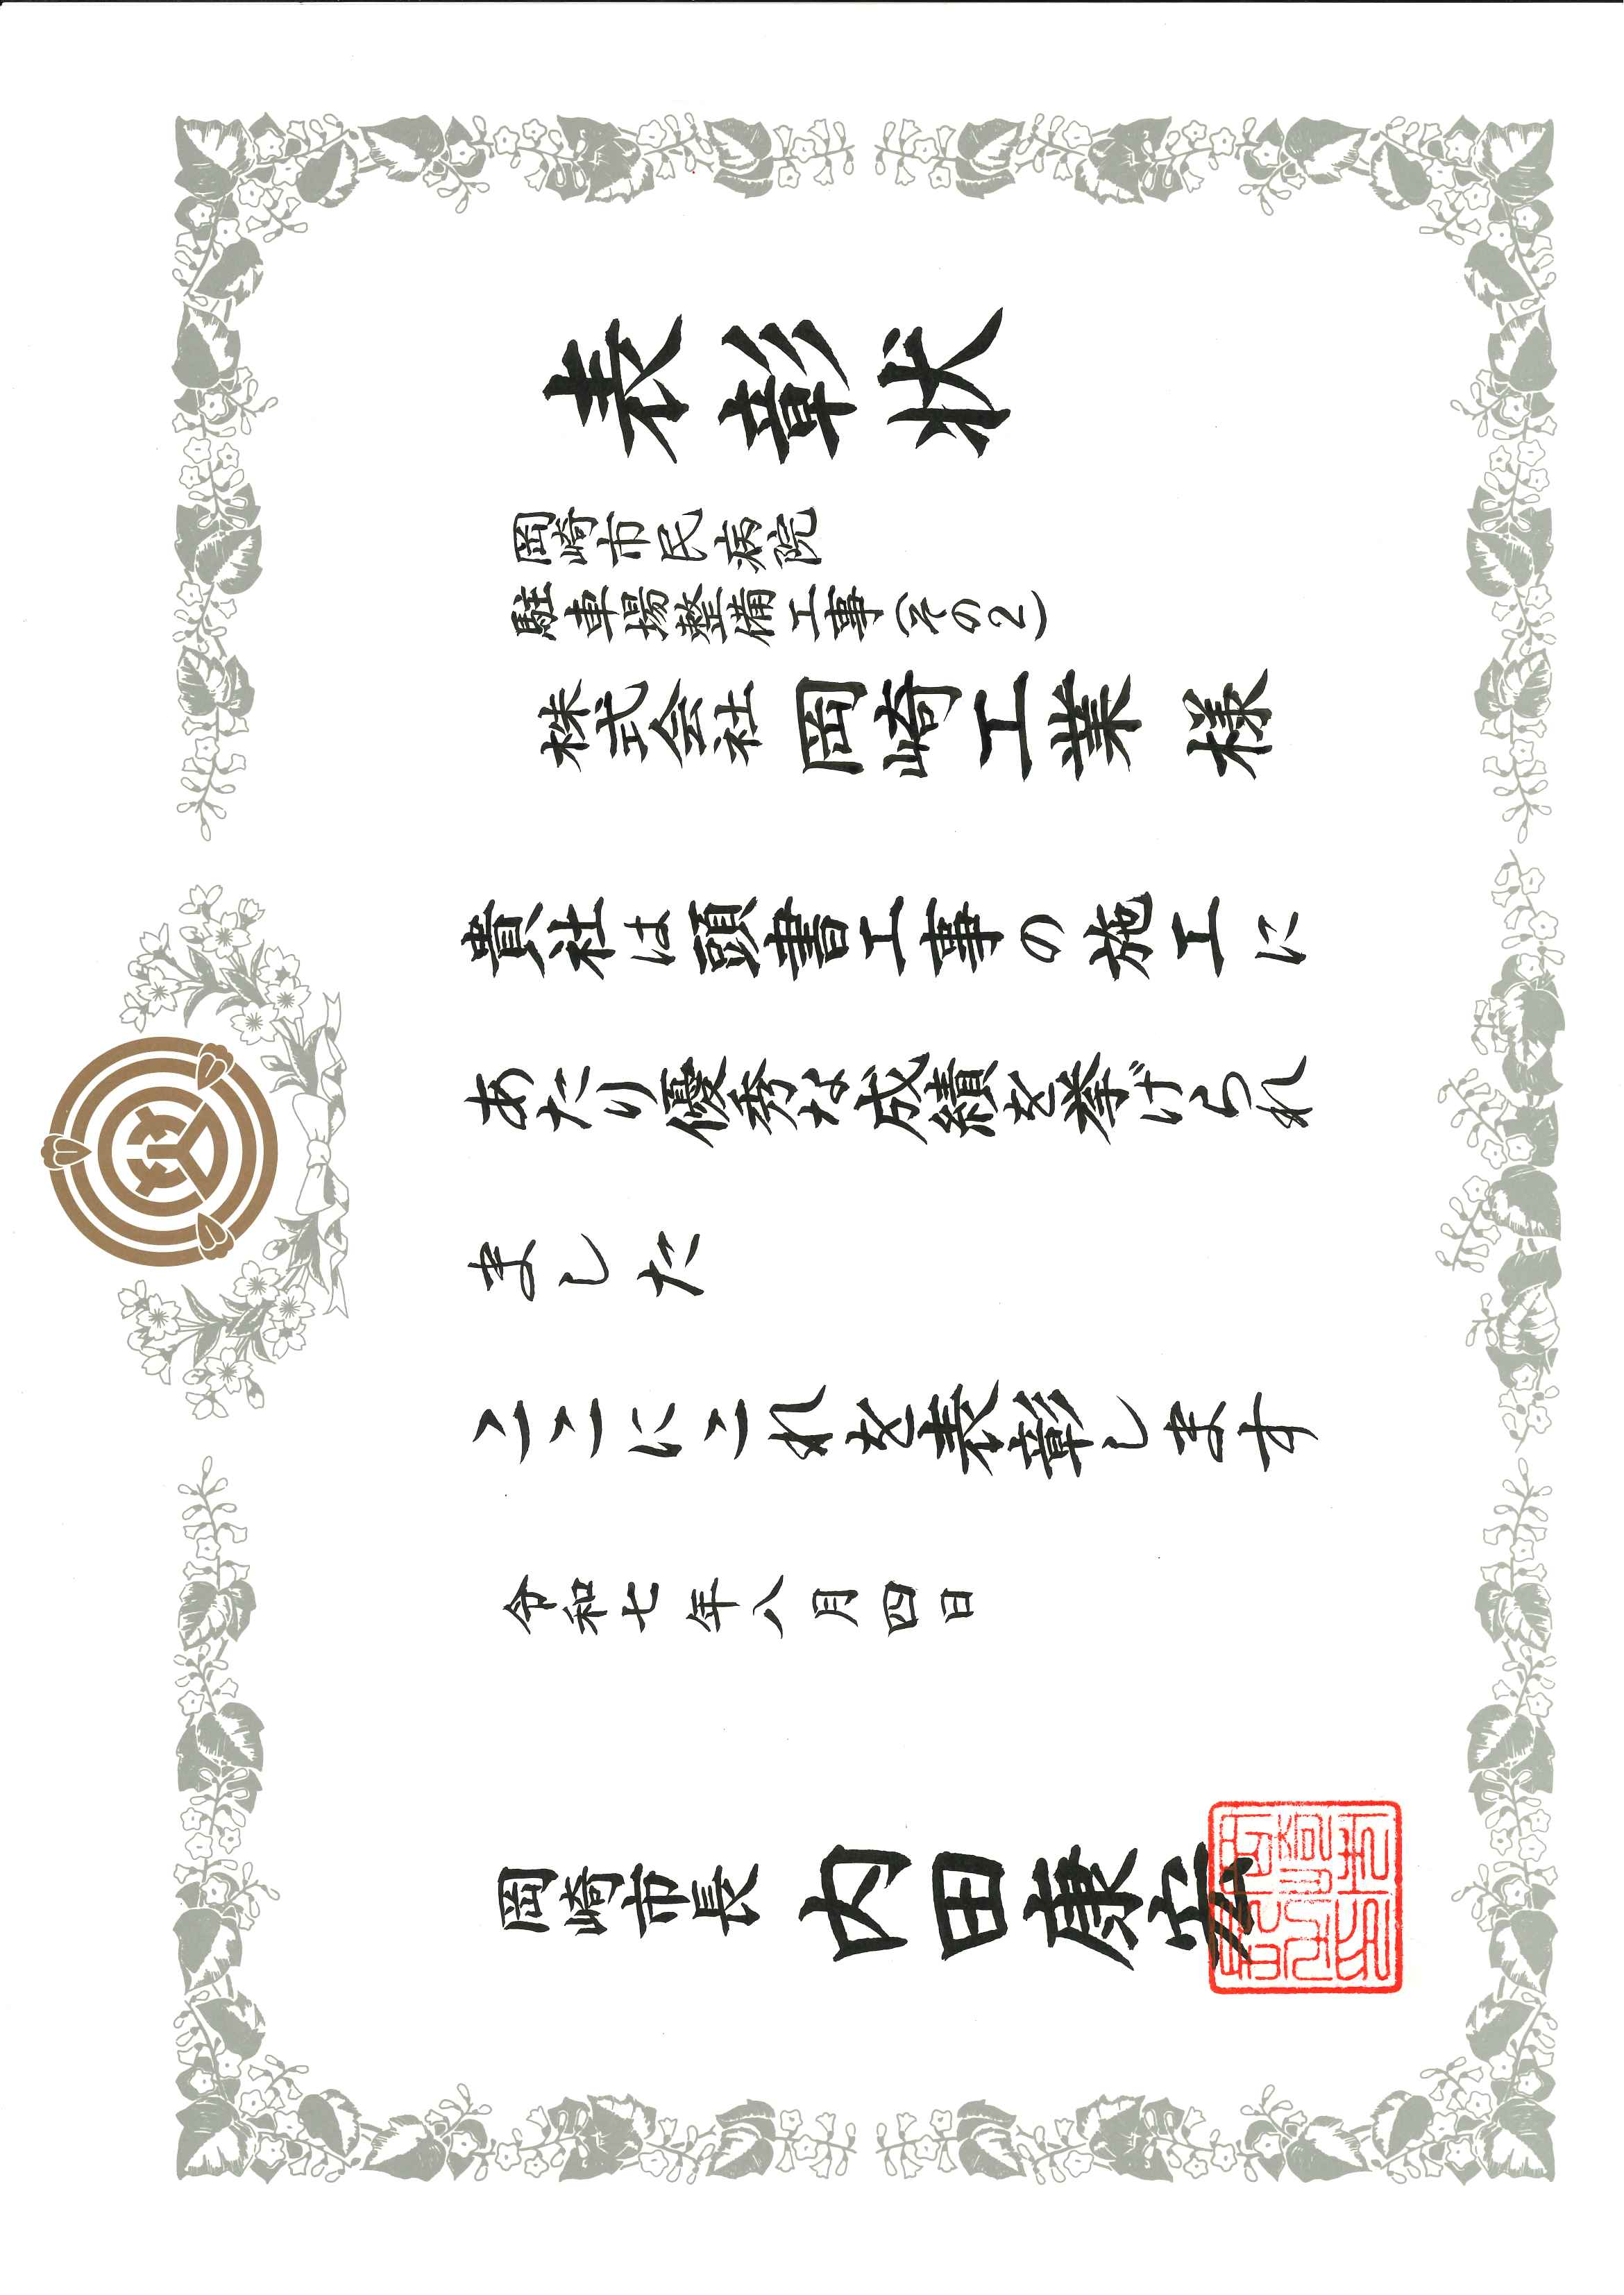 表彰状
岡崎市民病院
駐車場整備工事(その2)
株式会社 岡崎工業 様
貴社は頭書工事の施工に
あたり優秀な成績を挙げられ
ました
ここにこれを表彰します
令和七年八月四日
岡崎市長 内田康宏